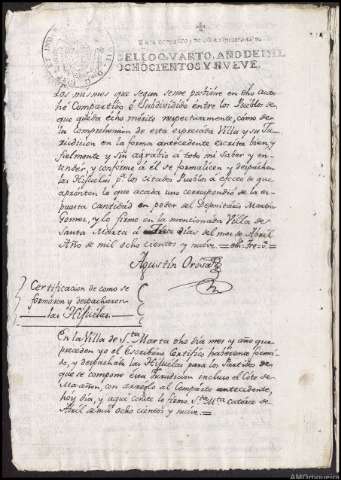 SELLO QUARTO, AÑO DE MIL
OCHOCIENTOS Y NUEVE.
los mismos que segun se me previene en dho auto
hé Compartido ó Subdividido entre los Pueblos de
que queda echo mérito respectivamente, cómo den-
tro la comprehension de esta expresada Villa y su Ju-
risdiccion en la forma antecedente escrita bien, y
fielmente y sin agrabio á todo mi Saber y en-
tender, y conforme á él se formalicen y despachen
las Hijuelas á los citados Pueblos á efecto de que
apronten lo que acada uno correspondió de la ex-
puesta Cantidad en poder del Depositario Martin
Gomez, y lo firmo en la mencionada Villa de
Santa Marta á dias del mes de Abril
Año de mil ocho cientos y nueve.
Agustin
Certificacion de como se
formaron y despacharon
las Hijuelas
En la Villa de Sta Marta dho dia mes y año que
preceden yo el Escribano Certifico haverse forma-
do, y despachado las Hijuelas para los Partidos de
que se compone esta Jurisdicion incluso el Coto de
Mañon, con arreglo al Comparto antecedente,
hoy dia, y aqui conste lo firmo Sta Mta catorce de
Abril de mil ocho cientos y nueve.